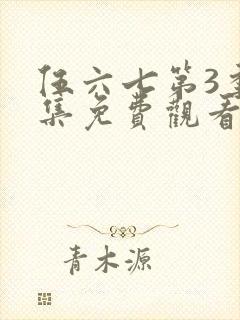 伍六七第3季
集免費觀看
青木源